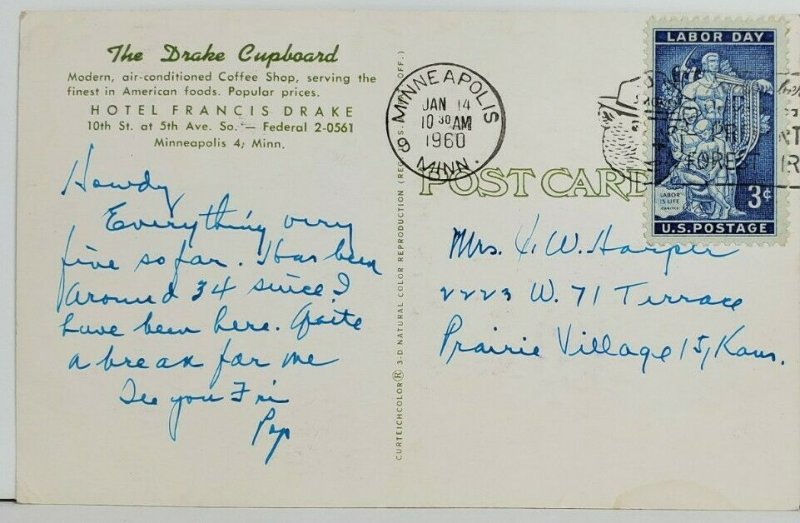 The Drake Cupboard
Modern, air-conditioned Coffee Shop, serving the
finest in American foods. Popular prices.
HOTEL FRANCIS DRAKE
10th St. at 5th Ave. So. — Federal 2-0561
Minneapolis 4, Minn.
Howdy
Everything very
fine so far. Has been
around 34 since I
have been here. Quite
a break for me
See you Fri
Pap
CURTEICHCOLOR® 3-D NATURAL COLOR REPRODUCTION (REG. U.S. PAT. OFF.)
MINNEAPOLIS
JAN 14
10 30 AM
1960
MINN.
POST CARD
LABOR DAY
LABOR IS LIFE
3¢
U.S. POSTAGE
Mrs. J. W. Harper
2223 W. 71 Terrace
Prairie Village 15, Kans.